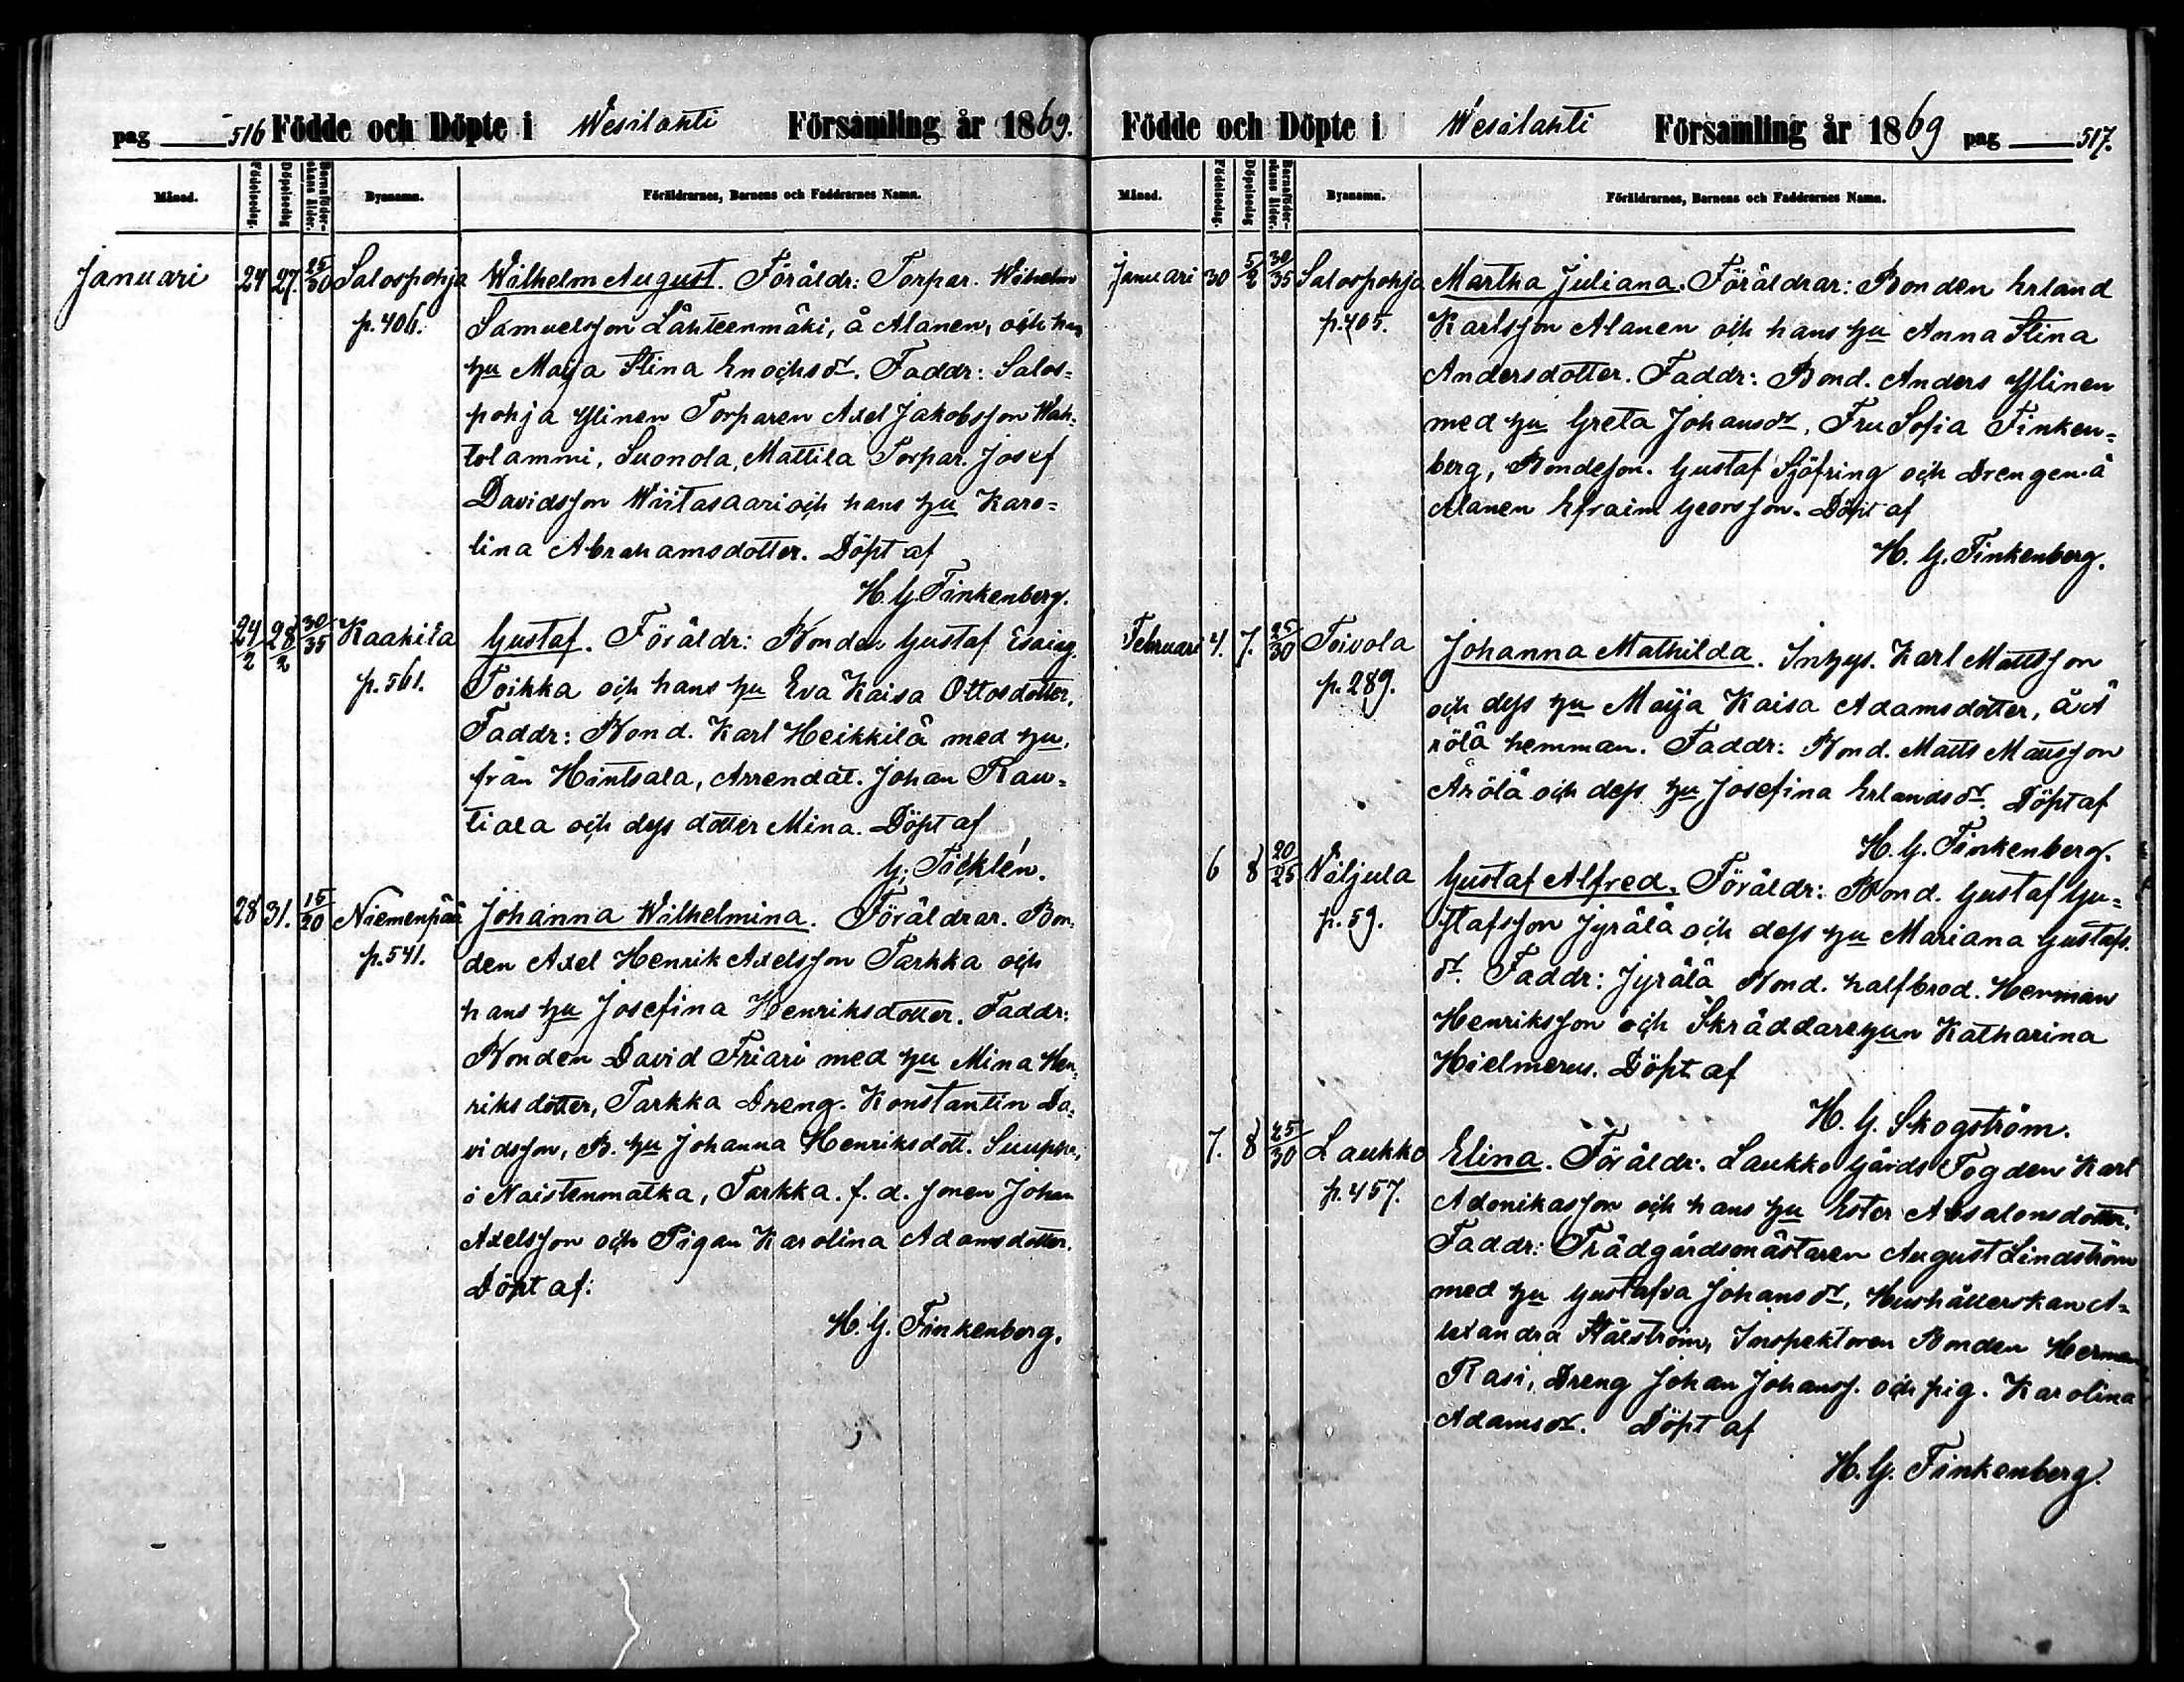 pag 516 Födde och Döpte i Wesilahti Församling år 1869.
Månad. Födelsedag. Döpelsedag Barnaföderskans ålder. Bynamn. Föräldrarnes, Barnens och Faddrarnes Namn.
Januari 24 27. 25/30 Salospohja Wilhelm August. Föräldr: Torpar. Wilhelm
p. 406. Samuelsson Lähteenmäki, å Alanen, och hans
hu Maija Stina Enochsdr. Faddr: Salos-
pohja Ylinen Torparen Axel Jakobsson Wah-
tolammi, Suonola, Mattila Torpar. Josef
Davidsson Wiitasaari och hans hu Karo-
lina Abrahamsdotter. Döpt af
H. G. Finkenberg.
24/2 28/2 30/35 Kaakila Gustaf. Föräldr: Bonden Gustaf Esaiæ.
p. 561. Toikka och hans hu Eva Kaisa Ottosdotter.
Faddr: Bond. Karl Heikkilä med hu,
från Hintsala, Arrendat. Johan Rau-
tiala och dess dotter Mina. Döpt af
G. Ticklén.
28 31. 15/20 Niemenpää Johanna Wilhelmina. Föräldrar. Bon-
p. 541. den Axel Henrik Axelsson Tarkka och
hans hu Josefina Henriksdotter. Faddr:
Bonden David Friari med hu Mina Hen-
riksdotter, Tarkka Dreng. Konstantin Da-
vidsson, B. hu Johanna Henriksdott.
i Naistenmatka, Tarkka. f. d. Johan
Axelsson och Pigan Karolina Adamsdotter.
Döpt af:
H. G. Finkenberg.
Födde och Döpte i Wesilahti Församling år 1869 pag 517.
Månad. Födelsedag. Döpelsedag Barnaföderskans ålder. Bynamn. Föräldrarnes, Barnens och Faddrarnes Namn.
Januari 30 5/2 30/35 Salospohja Martha Juliana. Föräldrar: Bonden Erland
p. 405. Karlsson Alanen och hans hu Anna Stina
Andersdotter. Faddr: Bond. Anders Ylinen
med hu Greta Johansdr, Fru Sofia Finken-
berg, Bondeson. Gustaf Sjöfring och Drengen å
Alanen Efraim Georsson. Döpt af
H. G. Finkenberg.
Februari 4. 7. 25/30 Toivola Johanna Mathilda. Inhys. Karl Mattsson
p. 289. och dess hu Maija Kaisa Adamsdotter, å Ä
rölä hemman. Faddr: Bond. Matts Mattsson
Ärölä och dess hu Josefina Erlandsdr. Döpt af
H. G. Finkenberg.
6 8 20/25 Wäljula Gustaf Alfred. Föräldr: Bond. Gustaf Gu-
p. 59. stafsson Jyrälä och dess hu Mariana Gustafs-
dr. Faddr: Jyrälä Bond. halfbrod. Herman
Henriksson och Skräddarehun Katharina
Hielmerus. Döpt af
H. G. Skogström.
7. 8 25/30 Laukko Elina. Föräldr. Laukko Gårds Fogden Karl
p. 457. Adonikasson och hans hu Ester Absalonsdotter.
Faddr: Trädgårdsmästaren August Lindström
med hu Gustafva Johansdr, Hushållerskan A-
lexandra Stålström, Inspektoren Bonden Herman
Rasi, Dreng Johan Johanss. och pig. Karolina
Adamsdr. Döpt af
H. G. Finkenberg.